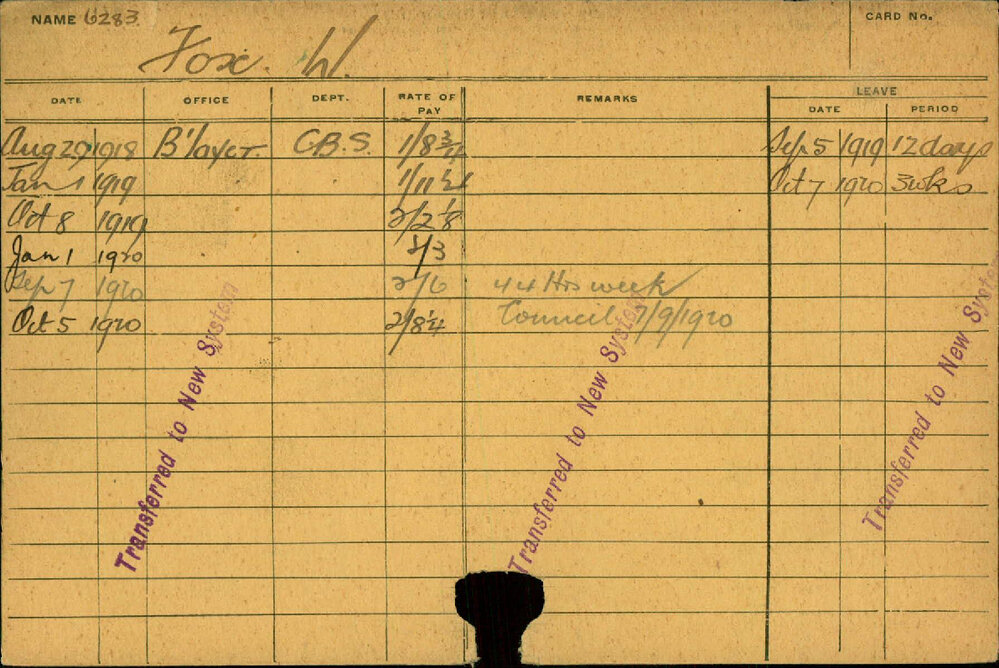 NAME 6283 CARD No.
Fox. W.
DATE OFFICE DEPT. RATE OF PAY REMARKS LEAVE
DATE PERIOD
Aug 29 1918 B'layer. C.B.S. 1/8¾ Sep 5 1919 12 days
Jan 1 1919 1/11½ Oct 7 1920 3 wks
Oct 8 1919 2/2⅛
Jan 1 1920 2/3
Sep 7 1920 2/6 44 Hrs week
Oct 5 1920 2/8¼ Council /9/1920
Transferred to New System
Transferred to New System
Transferred to New System